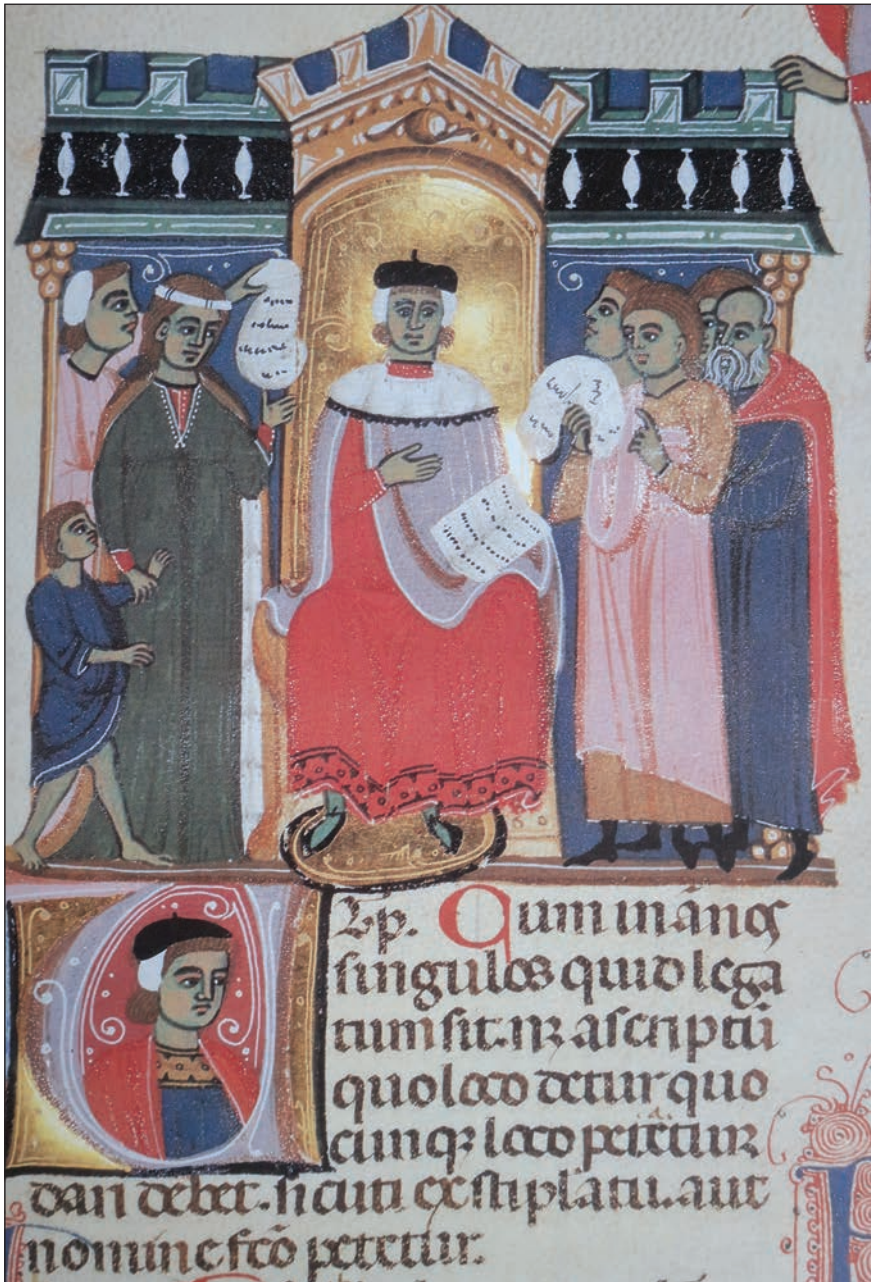 Qum in ãnos
singulos quid lega
tum sit. nꝫ ascriptũ
quo loco detur quo
cumqꝫ loco petetur
dari debet. sicuti ex stiplatu. aut
nomine fc̃o petetur.